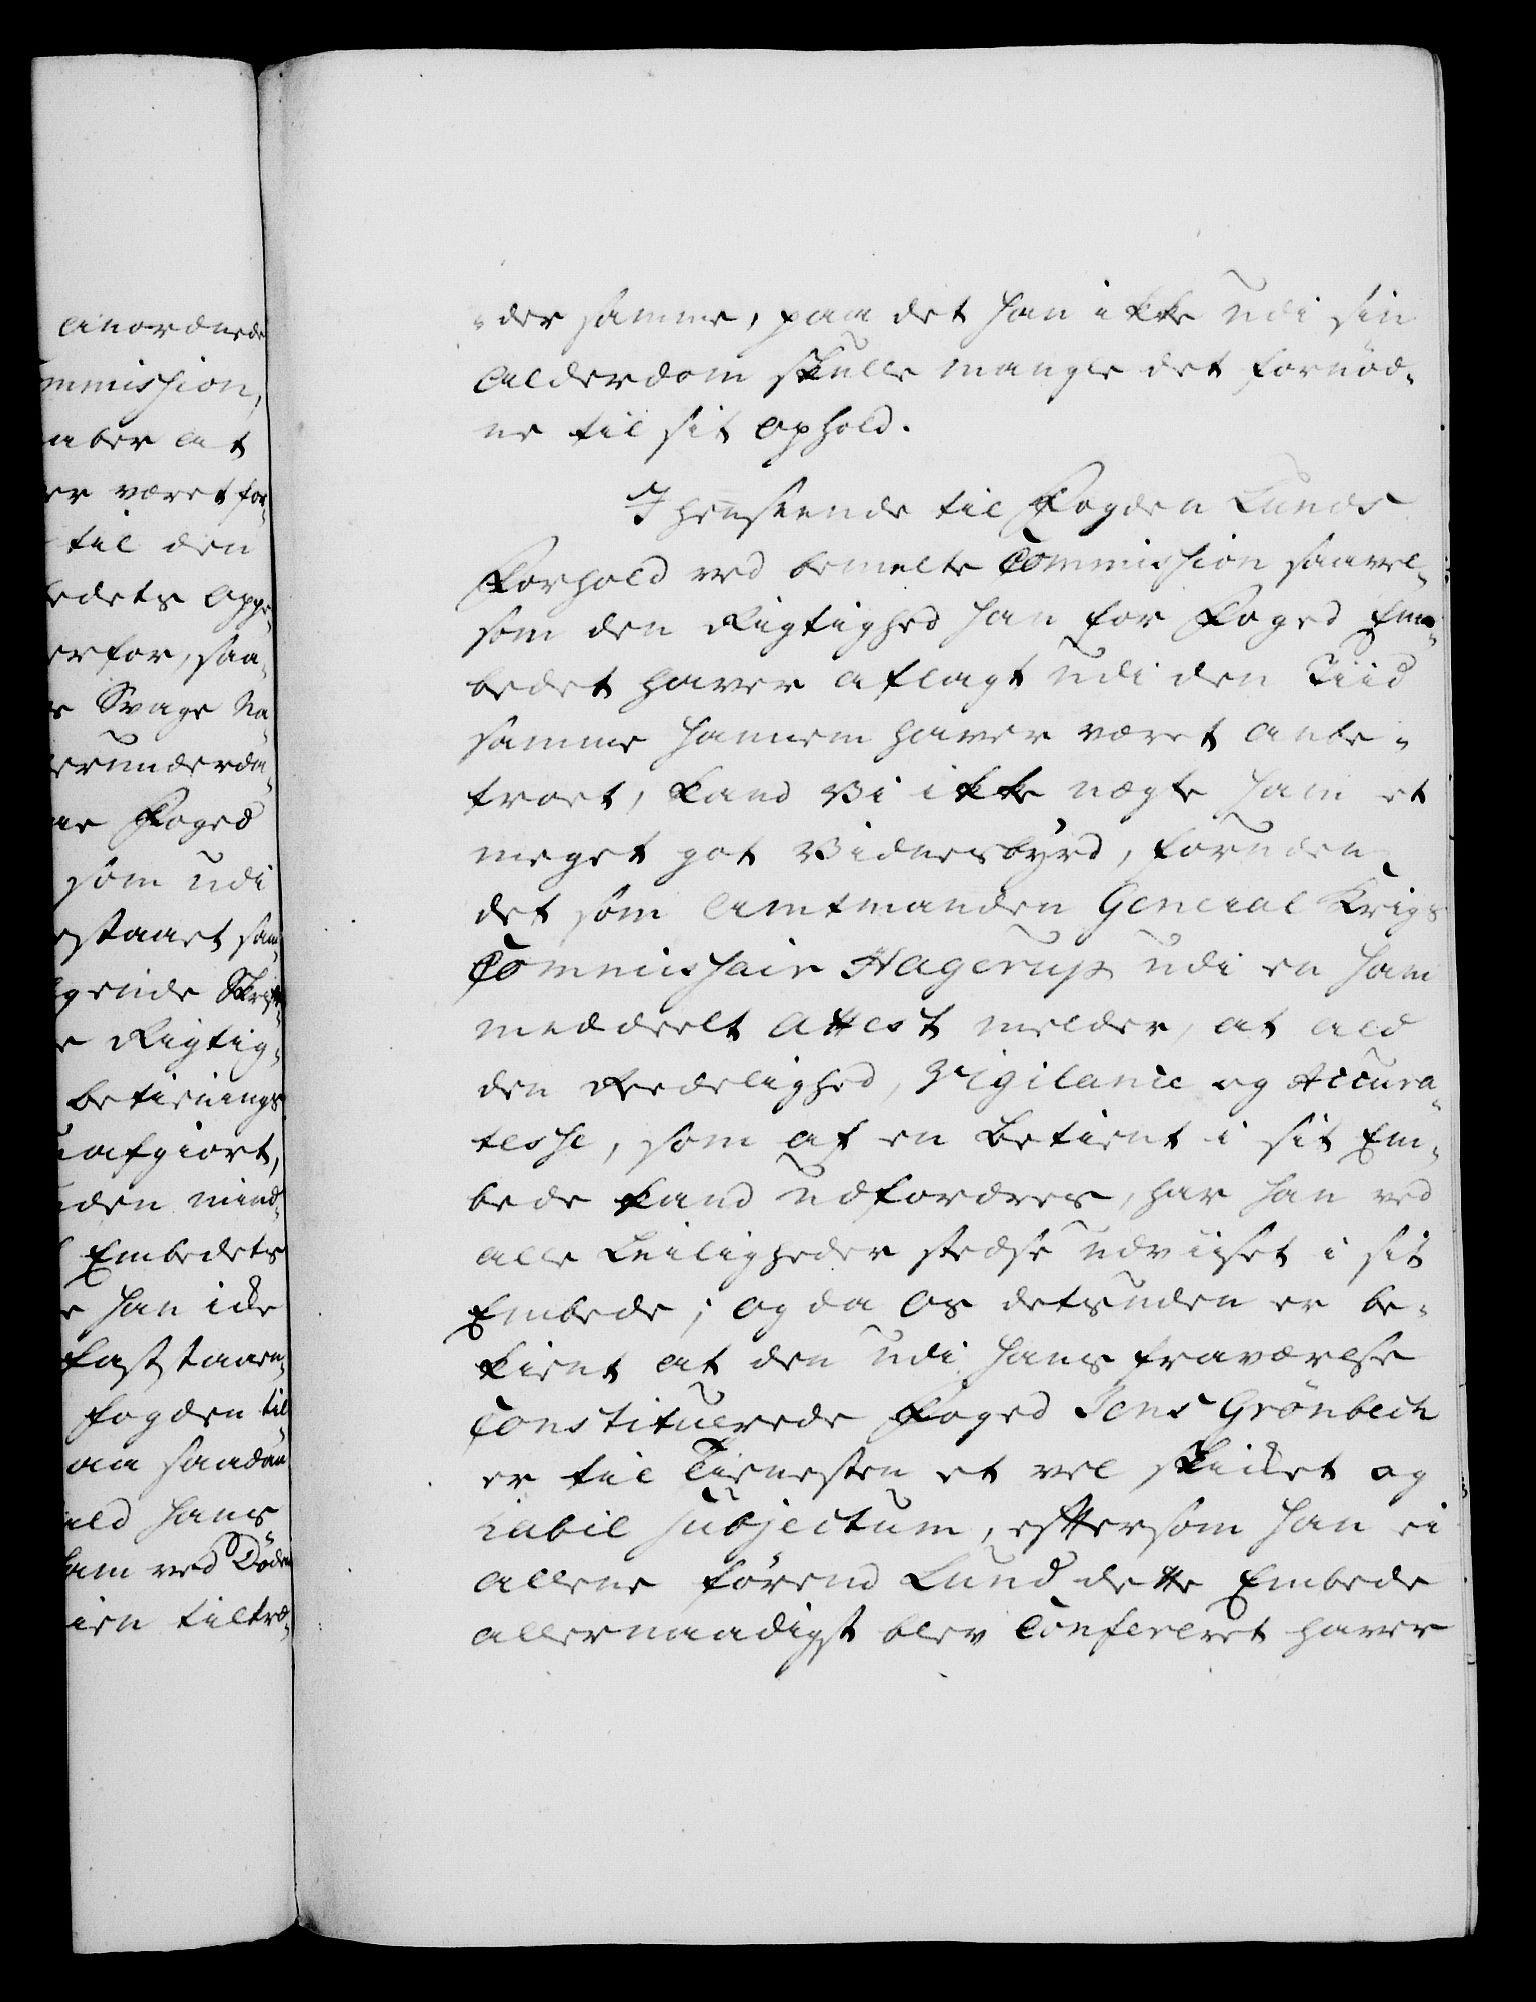 anordnede
mmission,
aber at
er været for¬
til den
edets Oppe¬
erfor, saa¬
Svage Na¬
erunderda¬
ne Foged
som udi
estaaet sam¬
gende Skrift¬
Rigtig¬
betienings
afgiort,
den mind¬
Embedets
han icke
fast taaen¬
fogden til
saadan
ald hans
ham ved Døden
ien tiltræ¬
der samme, paa det han ikke udi sin
Alderdom skulle mangle det fornød¬
ne til sit Ophold.
I henseende til Fogden Lunds
Forhold ved bemelte Commission saavel¬
som den Rigtighed han for Foged Em¬
bedet haver aflagt udi den Tiid
samme hannem haver været anbe¬
troet, kand Vi ikke nægte ham et
meget got Vidnesbyrd, foruden
det som Amtmanden General Krigs
Commissair Hagerup udi en ham
meddeelt Attest melder, at ald
den Redelighed, Vigilance og Accura¬
tesse, som af en Betient i sit Em¬
bede kand udfordres, har han ved
alle Leiligheder stedse udviiset i sit
Embede; og da Os desuden er be¬
kient at den udi hans fraværelse
Constituerede Foged Jens Grönbech
er til Tienesten et vel skicket og
habil Subjectum, efftersom han ei
allene førend Lund dette Embede
allernaadigst blev Confereret haver